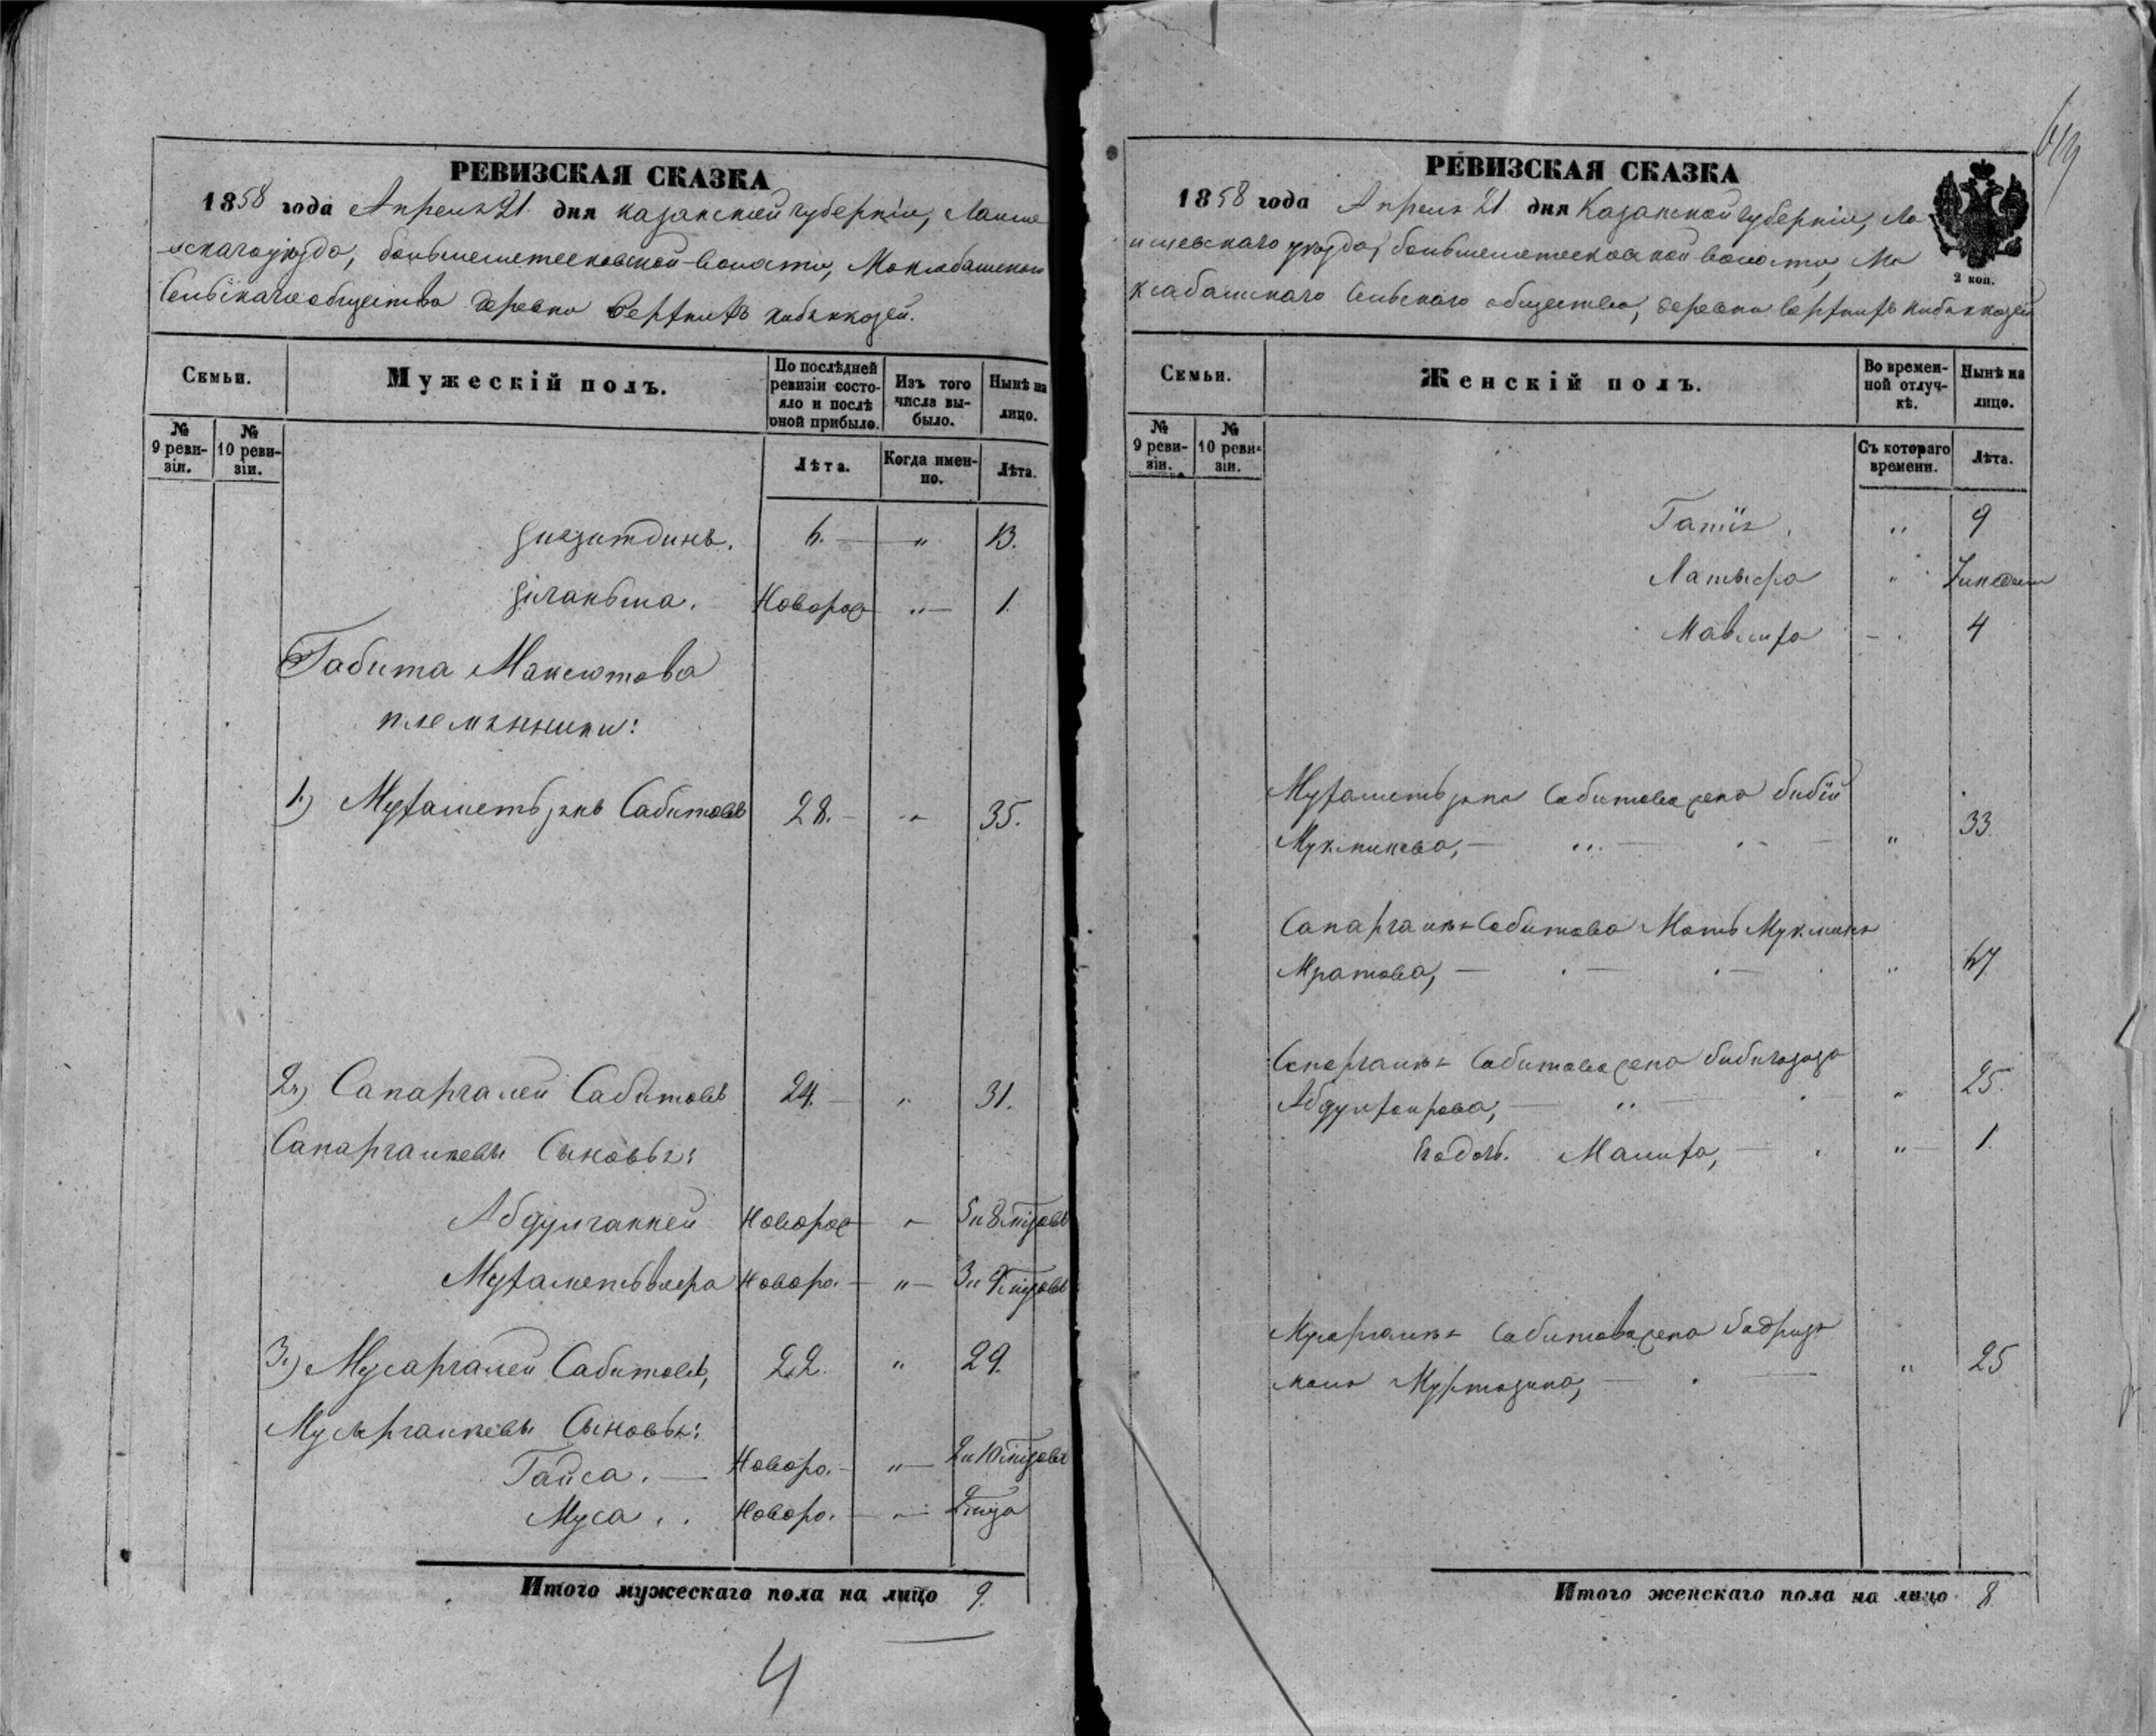 РЕВИЗСКАЯ СКАЗКА
1858 года Апреля 21 дня Казанской губерніи, Лаише
вскаго уѣзда, большеметесковской волости, Маклабашскаго
Сельскаго общества деревни Верхнихъ Кибякозей.
Семьи.
Мужескій полъ.
По послѣдней ревизіи состояло и послѣ оной прибыло.
Изъ того числа выбыло.
Нынѣ на лицо.
№ 9 ревизіи.
№ 10 ревизіи.
Лѣта.
Когда именно.
Лѣта.
6. — „ 13.
Новорож „— 1.
Габита Максютова
племянники:
1.) Мухаметьзянъ Сабитовъ 28. — „ 35.
2.) Сапаргалей Сабитовъ 24. — „ 31.
Сапаргалеевы Сыновья:
Абдулганней Новорож — „ 5 и 8 мѣсяцовъ
Мухаметьвафа Новоро. — „ — 3 и мѣсяцовъ
3.) Мусаргалей Сабитовъ, 22. „ 29.
Мусаргалеевы Сыновья:
Гайса. — Новоро. — „ — 2 и 10 мѣсяцовъ
Муса.. Новоро. — „ — 2 мѣсяца
Итого мужескаго пола на лицо 9.
4
РЕВИЗСКАЯ СКАЗКА
1858 года Апреля 21 дня Казанской Губерніи, Ла
ишевскаго уѣзда, большеметесковской волости, Ма
клабашскаго Сельскаго общества, деревни Верхнихъ Кибякозей
2 коп.
Семьи.
Женскій полъ.
Во временной отлучкѣ.
Нынѣ на лицо.
№ 9 ревизіи.
№ 10 ревизіи.
Съ котораго времени.
Лѣта.
„ 9
Латыфа „
Мавлифа — . 4
Мухаметьзяна Сабитова жена Бибіи
Мукминева, — „ — „ 33.
Сапаргалея Сабитова Мать Мукмина
Мратова, — . — . — „
Сапаргалея Сабитова жена
— „ — „ 25.
Его дочь. — . „ — 1.
Мусаргалея Сабитова жена Бадриза
мала Муртазина, — . — „ 25
Итого женскаго пола на лицо 8